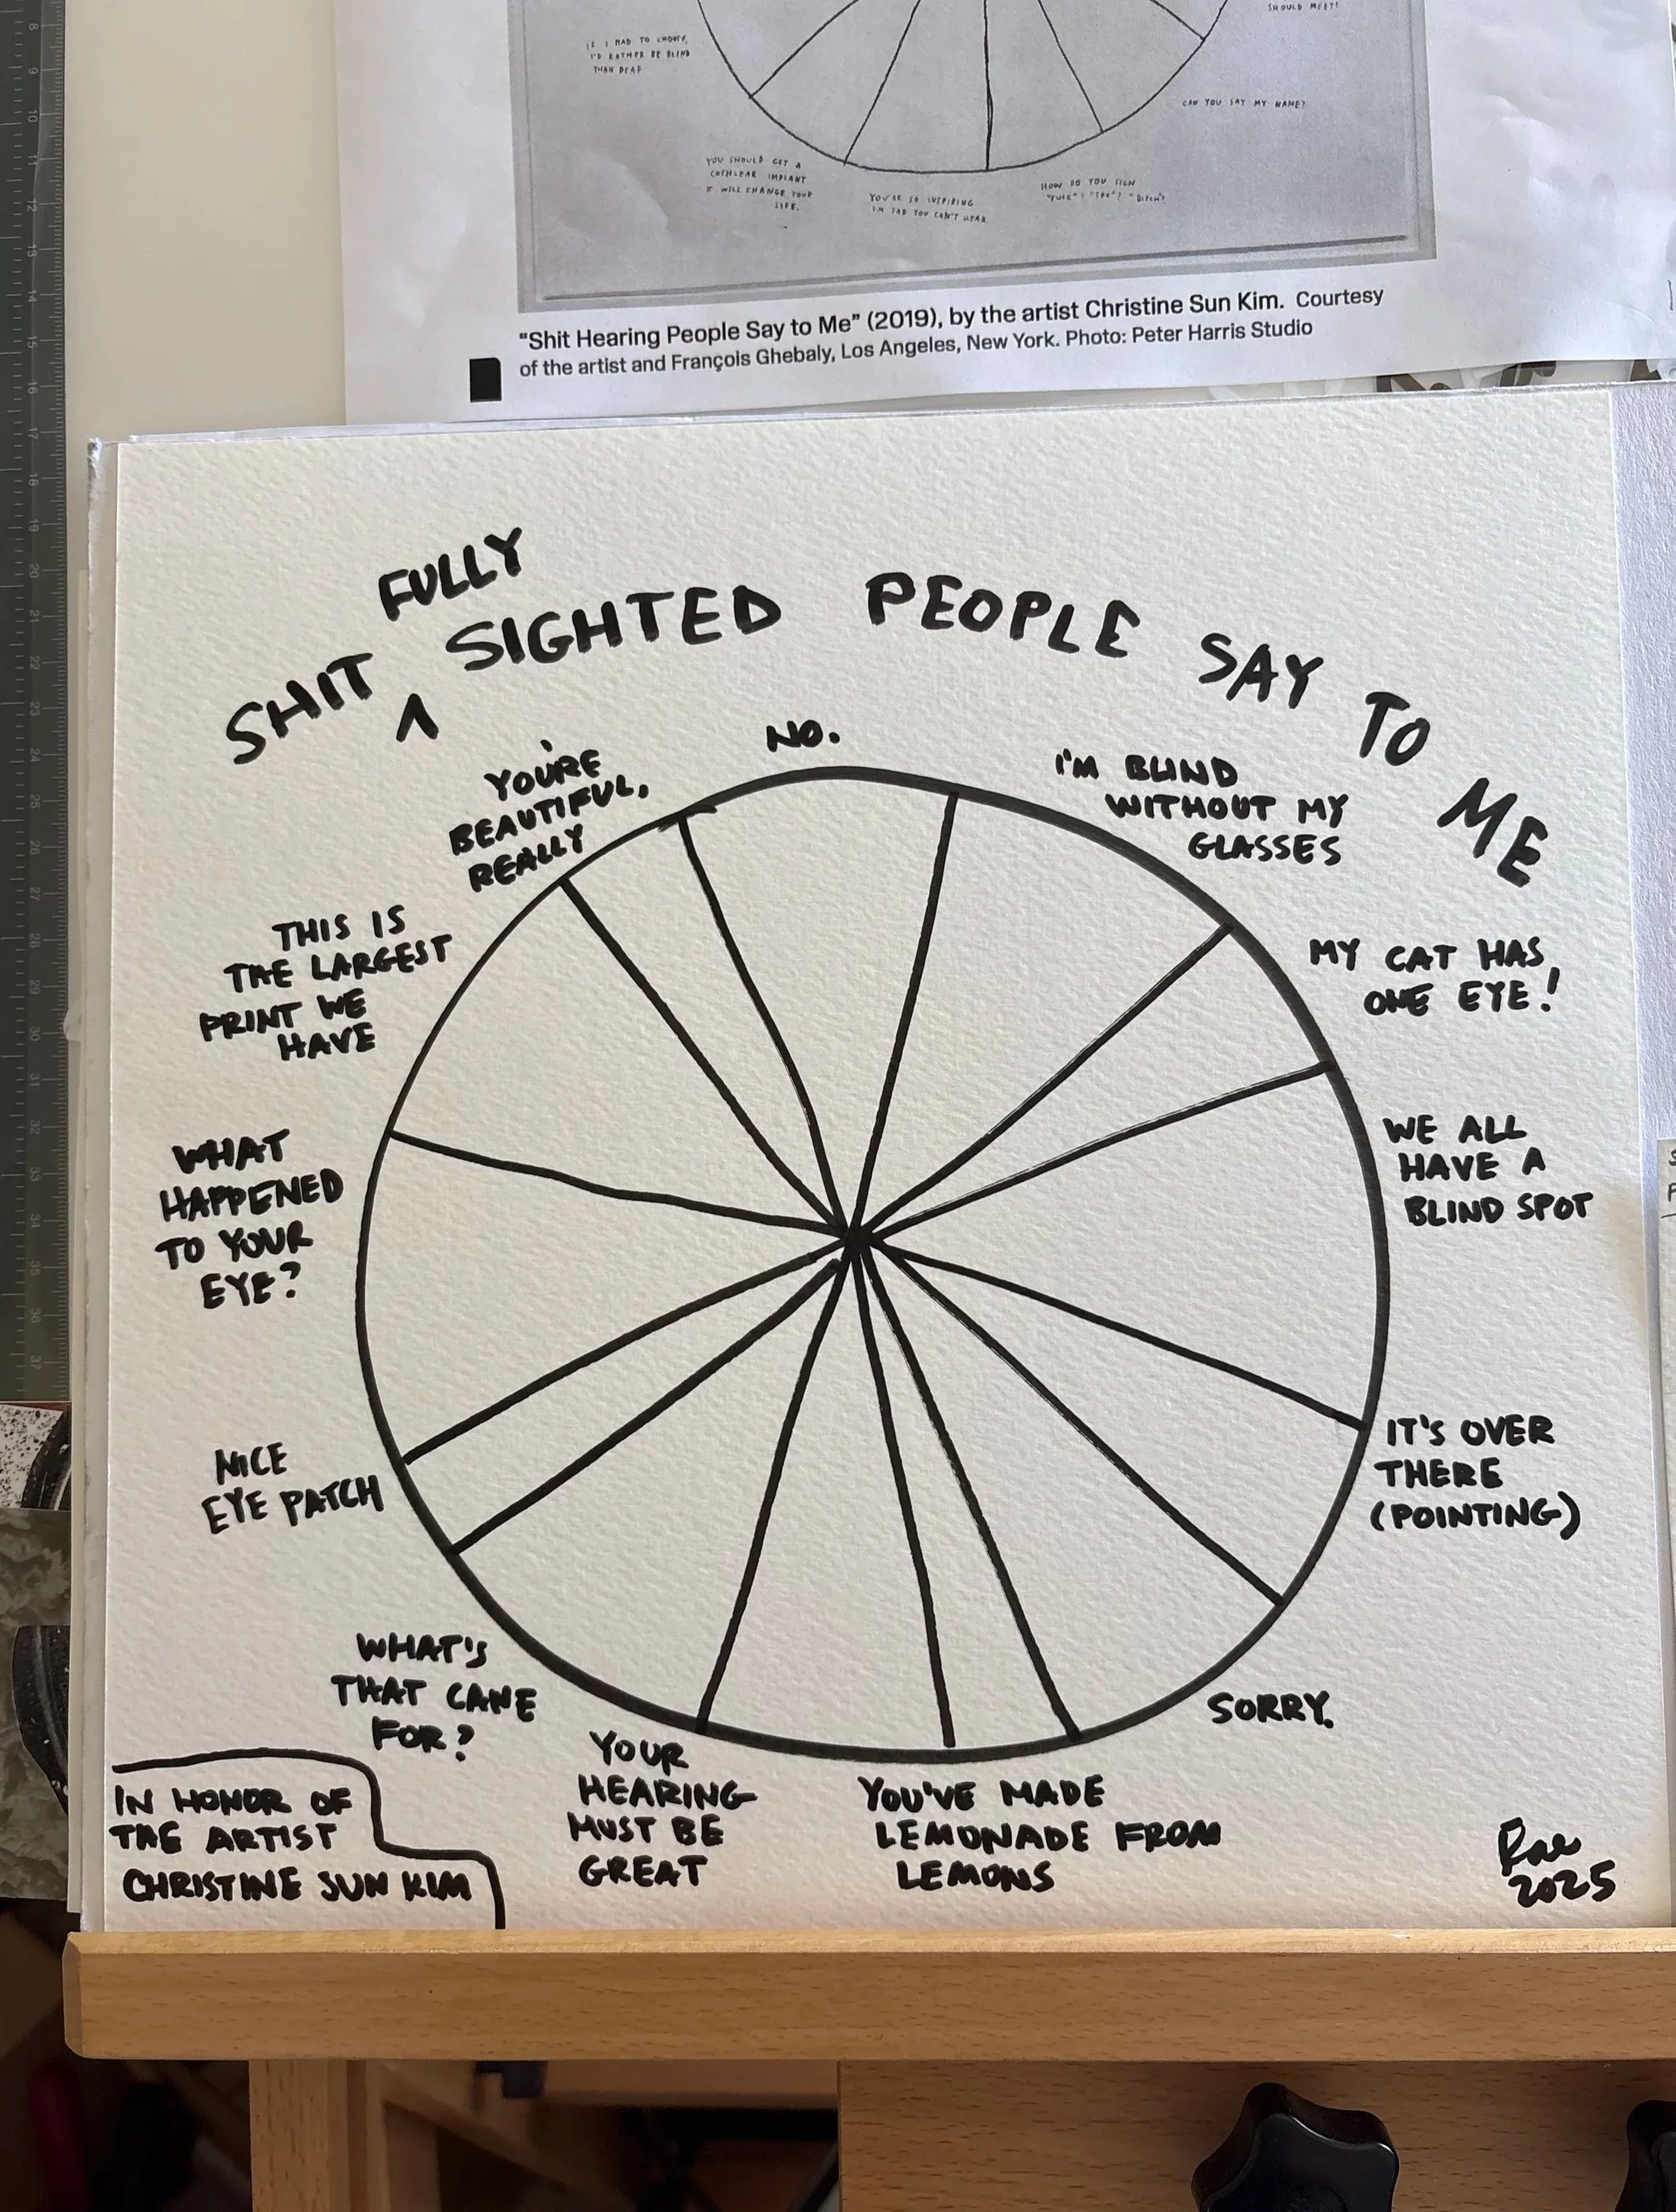 SHOULD MEET!
IF I HAD TO CHOOSE,
I'D RATHER BE BLIND
THAN DEAF
CAN YOU SAY MY NAME?
YOU SHOULD GET A
COCHLEAR IMPLANT
IT WILL CHANGE YOUR
LIFE.
YOU'RE SO INSPIRING
I'M SAD YOU CAN'T HEAR
HOW DO YOU SIGN
"FUCK"? "SEX"? "BITCH"?
“Shit Hearing People Say to Me” (2019), by the artist Christine Sun Kim. Courtesy
of the artist and François Ghebaly, Los Angeles, New York. Photo: Peter Harris Studio
FULLY
SHIT ^ SIGHTED PEOPLE SAY TO ME
NO.
I'M BLIND
WITHOUT MY
GLASSES
MY CAT HAS
ONE EYE!
WE ALL
HAVE A
BLIND SPOT
IT'S OVER
THERE
(POINTING)
SORRY.
YOU'VE MADE
LEMONADE FROM
LEMONS
YOUR
HEARING
MUST BE
GREAT
WHAT'S
THAT CANE
FOR?
NICE
EYE PATCH
WHAT
HAPPENED
TO YOUR
EYE?
THIS IS
THE LARGEST
PRINT WE
HAVE
YOU'RE
BEAUTIFUL,
REALLY
IN HONOR OF
THE ARTIST
CHRISTINE SUN KIM
Rae
2025
8
9
10
11
12
13
14
15
16
17
18
19
20
21
22
23
24
25
26
27
28
29
30
31
32
33
34
35
36
37